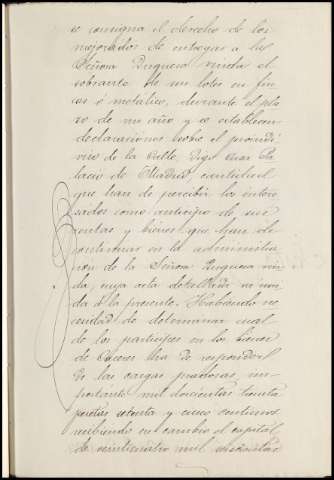 se consigna el derecho de los
mejorados de entregar a la
Señora Duquesa viuda el
sobrante de sus lotes en fin-
cas ó metálico, durante el pla-
zo de un año y se establecen
declaraciones sobre el proindi-
viso de la Calle, digo Casa Pa-
lacio de Madrid, cantidad
que han de percibir los intere-
sados como anticipo de sus
rentas y bienes que han de
continuar en la administra-
ción de la Señora Duquesa viu-
da, cuya acta detallada va uni-
da á la presente. Habiendo ne-
cesidad de determinar cual
de los partícipes en los bienes
de Cáceres ha de responder
de las cargas piadosas, im-
portante mil doscientas treinta
pesetas setenta y cinco centimos
recibiendo en cambio el capital
de veinticuatro mil seiscientas